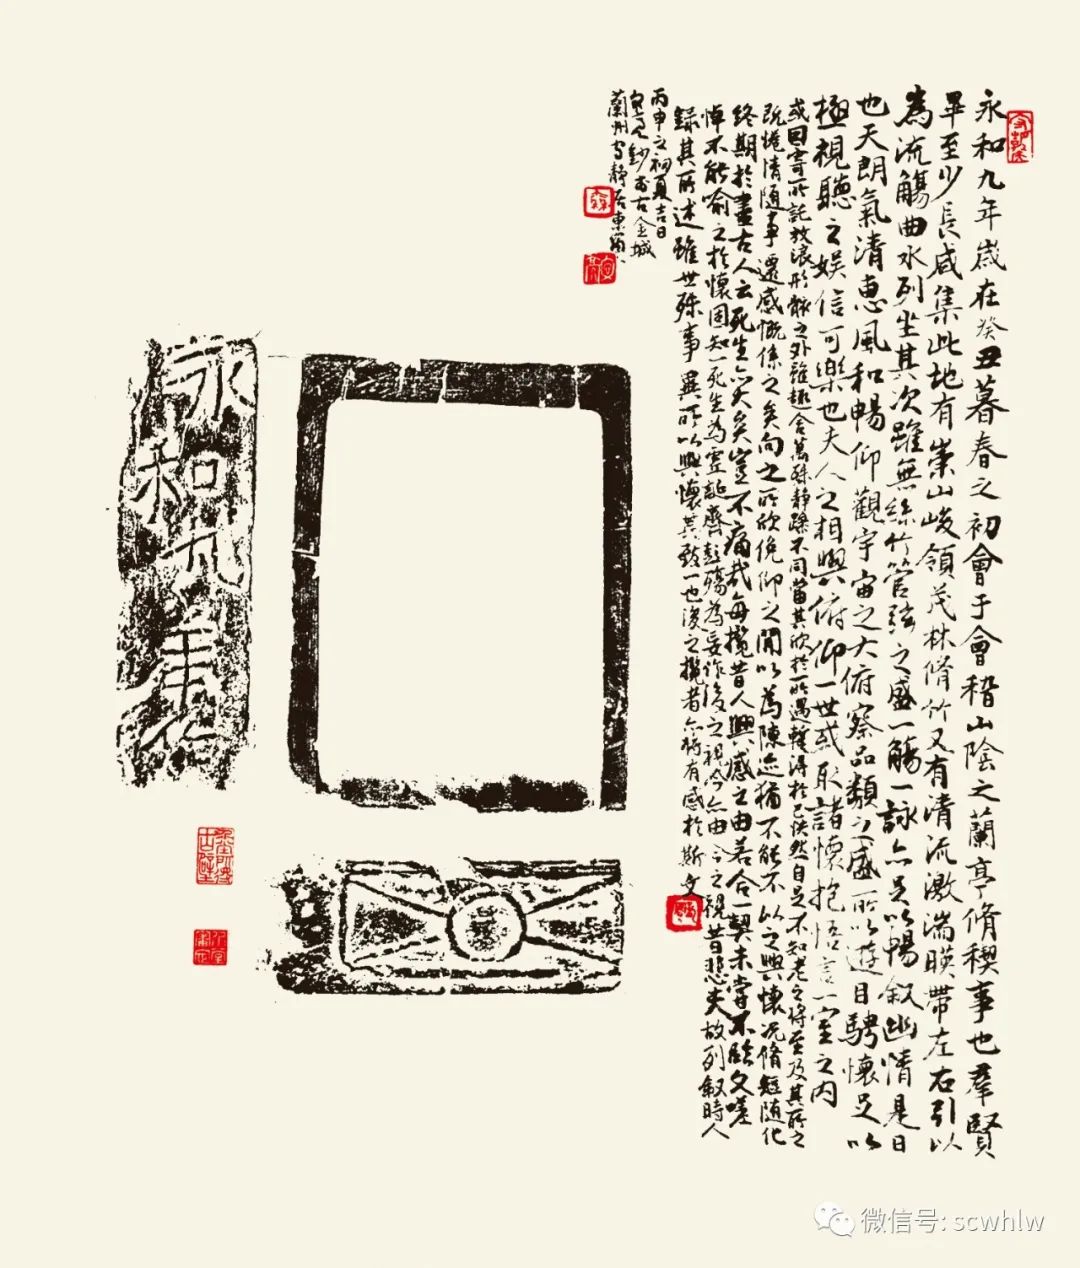 永和九年歲在癸丑暮春之初會于會稽山陰之蘭亭脩稧事也羣賢
畢至少長咸集此地有崇山峻領茂林脩竹又有清流激湍暎帶左右引以
為流觴曲水列坐其次雖無絲竹管弦之盛一觴一詠亦足以暢叙幽情是日
也天朗氣清惠風和暢仰觀宇宙之大俯察品類之盛所以遊目騁懷足以
極視聽之娛信可樂也夫人之相與俯仰一世或取諸懷抱悟言一室之内
或因寄所託放浪形骸之外雖趣舍萬殊靜躁不同當其欣於所遇蹔得於己怏然自足不知老之將至及其所之
既惓情随事遷感慨係之矣向之所欣俛仰之閒以為陳迹猶不能不以之興懷況脩短随化
終期於盡古人云死生亦大矣豈不痛哉每攬昔人興感之由若合一契未嘗不臨文嗟
悼不能喻之於懷固知一死生為虛誕齊彭殤為妄作後之視今亦由今之視昔悲夫故列叙時人
録其所述雖世殊事異所以興懷其致一也後之攬者亦將有感於斯文
丙申之初夏吉日
鈔於古金城
蘭州守靜居東窗
永和九年
微信号: scwhlw